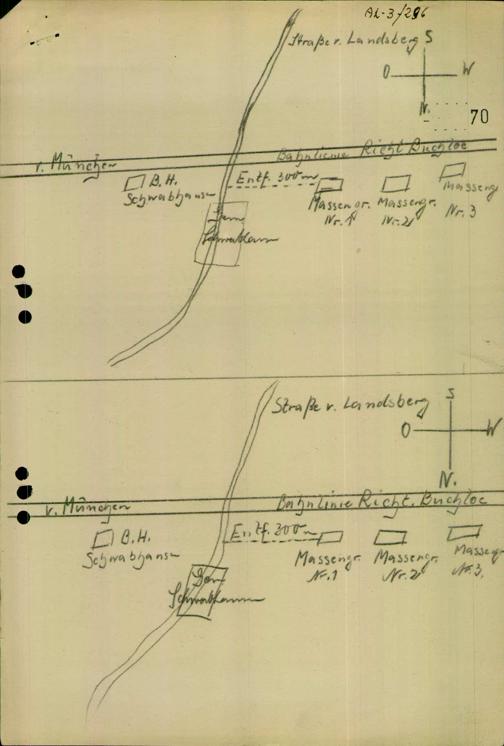 AL-3/296
Straße v. Landsberg
S
O W
N.
70
v. München
Bahnlinie Richt. Buchloe
B.H.
Schwabhausen
Entf. 300 m
Massengr.
Nr. 1
Massengr.
Nr. 2
Masseng
Nr. 3
Schwabhausen
Straße v. Landsberg
S
O W
N.
v. München
Bahnlinie Richt. Buchloe
B.H.
Schwabhausen
Entf. 200 m
Massengr.
Nr. 1
Massengr.
Nr. 2
Masseng
Nr. 3.
Schwabhausen